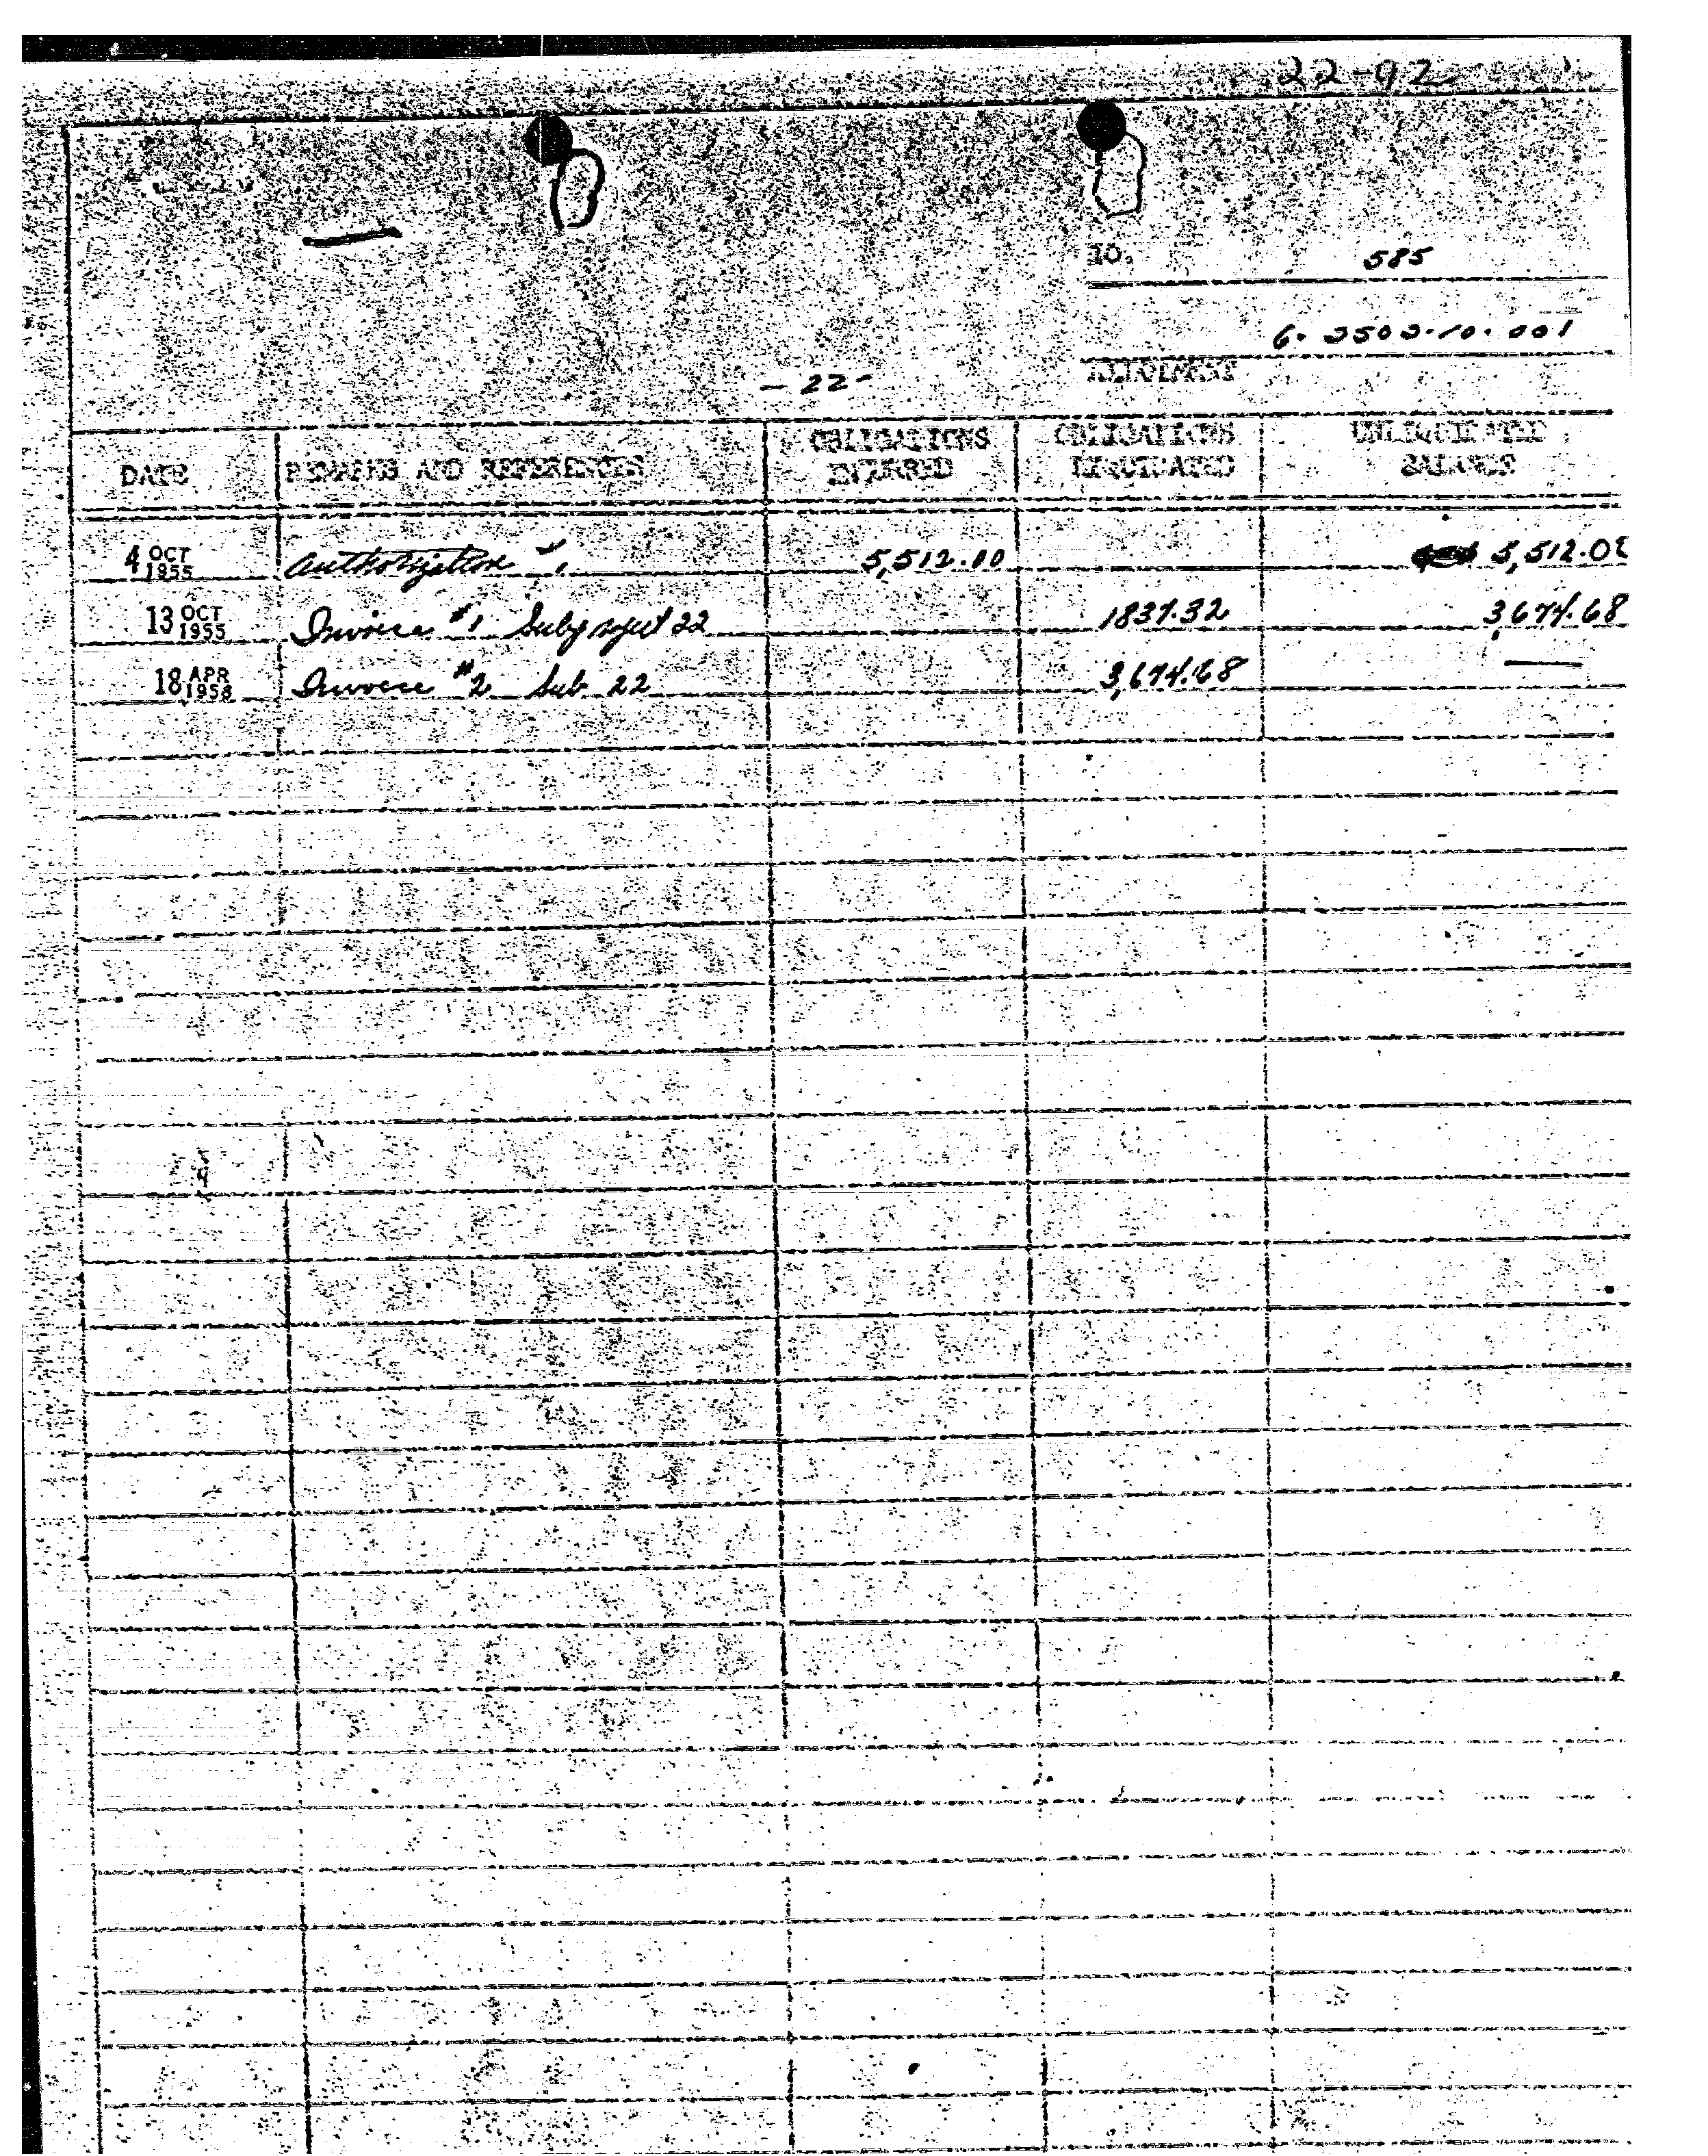 22-92
NO. 585
6-2502-10-001
ALLOTMENT
- 22 -
DATE REMARKS AND REFERENCES OBLIGATIONS INCURRED OBLIGATIONS LIQUIDATED UNLIQUIDATED BALANCE
4 OCT 1955 Authorization #1 5,512.00 5,512.00
13 OCT 1955 Invoice #1 Subproject 22 1837.32 3,674.68
18 APR 1958 Invoice #2 Sub 22 3,674.68 —